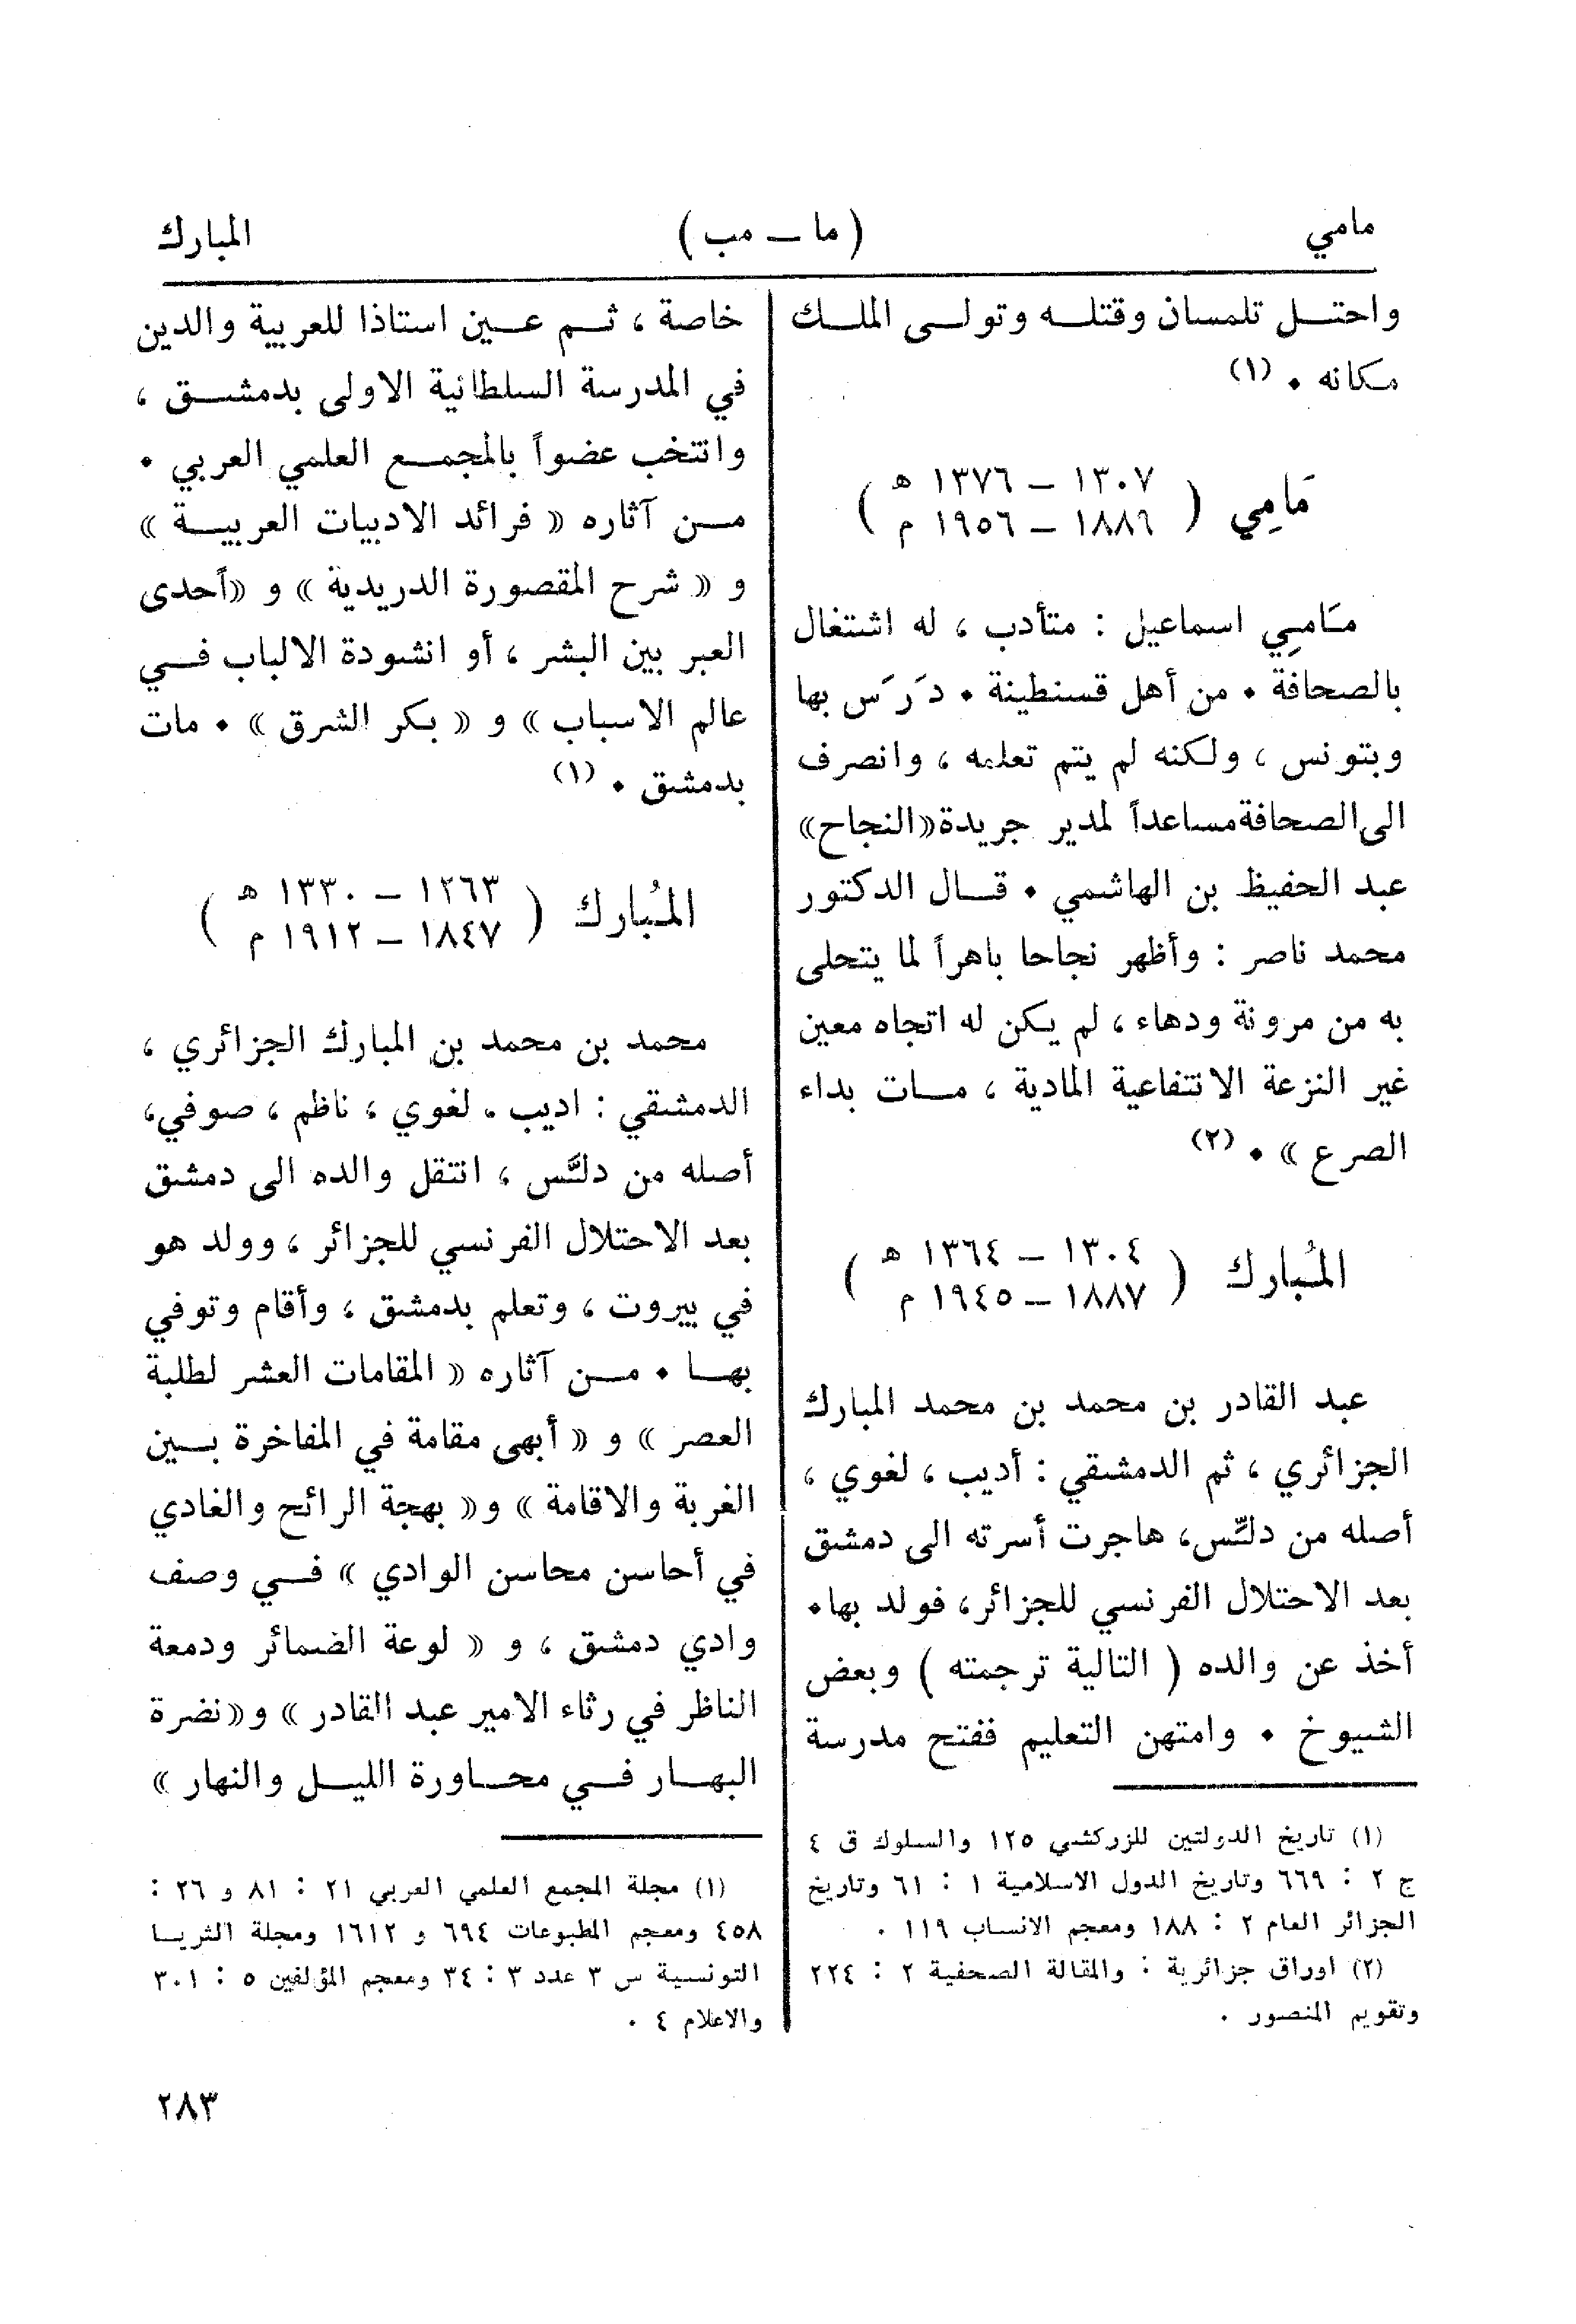 مامي
( ما ــ مب )
المبارك
واحتــل تلمسان وقتلــه وتولــى الملــك
مكانه . (١)
مَامِي ( ١٣٠٧ – ١٣٧٦ هـ
١٨٨٦ – ١٩٥٦ م )
مَامِي اسماعيل : متأدب ، له اشتغال
بالصحافة . من أهل قسنطينة . دَرَس بها
وبتونس ، ولكنه لم يتم تعلمه ، وانصرف
الى الصحافة مساعداً لمدير جريدة «النجاح»
عبد الحفيظ بن الهاشمي . قــال الدكتور
محمد ناصر : وأظهر نجاحا باهراً لما يتحلى
به من مرونة ودهاء ، لم يكن له اتجاه معين
غير النزعة الانتفاعية المادية ، مــات بداء
الصرع » . (٢)
المُبارك ( ١٣٠٤ – ١٣٦٤ هـ
١٨٨٧ – ١٩٤٥ م )
عبد القادر بن محمد بن محمد المبارك
الجزائري ، ثم الدمشقي : أديب ، لغوي ،
أصله من دلّس، هاجرت أسرته الى دمشق
بعد الاحتلال الفرنسي للجزائر، فولد بها.
أخذ عن والده ( التالية ترجمته ) وبعض
الشيوخ . وامتهن التعليم ففتح مدرسة
(١) تاريخ الدولتين للزركشي ١٢٥ والسلوك ق ٤
ج ٢ : ٦٦٩ وتاريخ الدول الاسلامية ١ : ٦١ وتاريخ
الجزائر العام ٢ : ١٨٨ ومعجم الانساب ١١٩ .
(٢) اوراق جزائرية : والمقالة الصحفية ٢ : ٢٢٤
وتقويم المنصور .
خاصة ، ثــم عــين استاذا للعربية والدين
في المدرسة السلطانية الاولى بدمشــق ،
وانتخب عضواً بالمجمــع العلمي العربي .
مــن آثاره « فرائد الادبيات العربيــة »
و « شرح المقصورة الدريدية » و «أحدى
العبر بين البشر ، أو انشودة الالباب فــي
عالم الاسباب » و « بكر الشرق » . مات
بدمشق . (١)
المُبارك ( ١٢٦٣ – ١٣٣٠ هـ
١٨٤٧ – ١٩١٢ م )
محمد بن محمد بن المبارك الجزائري ،
الدمشقي : اديب ، لغوي ، ناظم ، صوفي،
أصله من دلَّس ، انتقل والده الى دمشق
بعد الاحتلال الفرنسي للجزائر ، وولد هو
في بيروت ، وتعلم بدمشق ، وأقام وتوفي
بهــا . مــن آثاره « المقامات العشر لطلبة
العصر » و « أبهى مقامة في المفاخرة بــين
الغربة والاقامة » و« بهجة الرائح والغادي
في أحاسن محاسن الوادي » فــي وصف
وادي دمشق ، و « لوعة الضمائر ودمعة
الناظر في رثاء الامير عبد القادر » و«نضرة
البهــار فــي محــاورة الليــل والنهار »
(١) مجلة المجمع العلمي العربي ٢١ : ٨١ و ٢٦ :
٤٥٨ ومعجم المطبوعات ٦٩٤ و ١٦١٢ ومجلة الثريــا
التونسية س ٣ عدد ٣ : ٣٤ ومعجم المؤلفين ٥ : ٣٠١
والاعلام ٤ .
٢٨٣